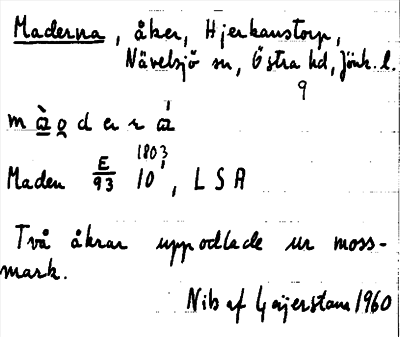 Maderna, åker, Hjerkanstorp,
Nävelsjö sn, Östra hd, Jönk. l.
9
Maden E/93 1803 10¹, LSA
Två åkrar uppodlade ur moss-
mark.
Nils af Geijerstam 1960